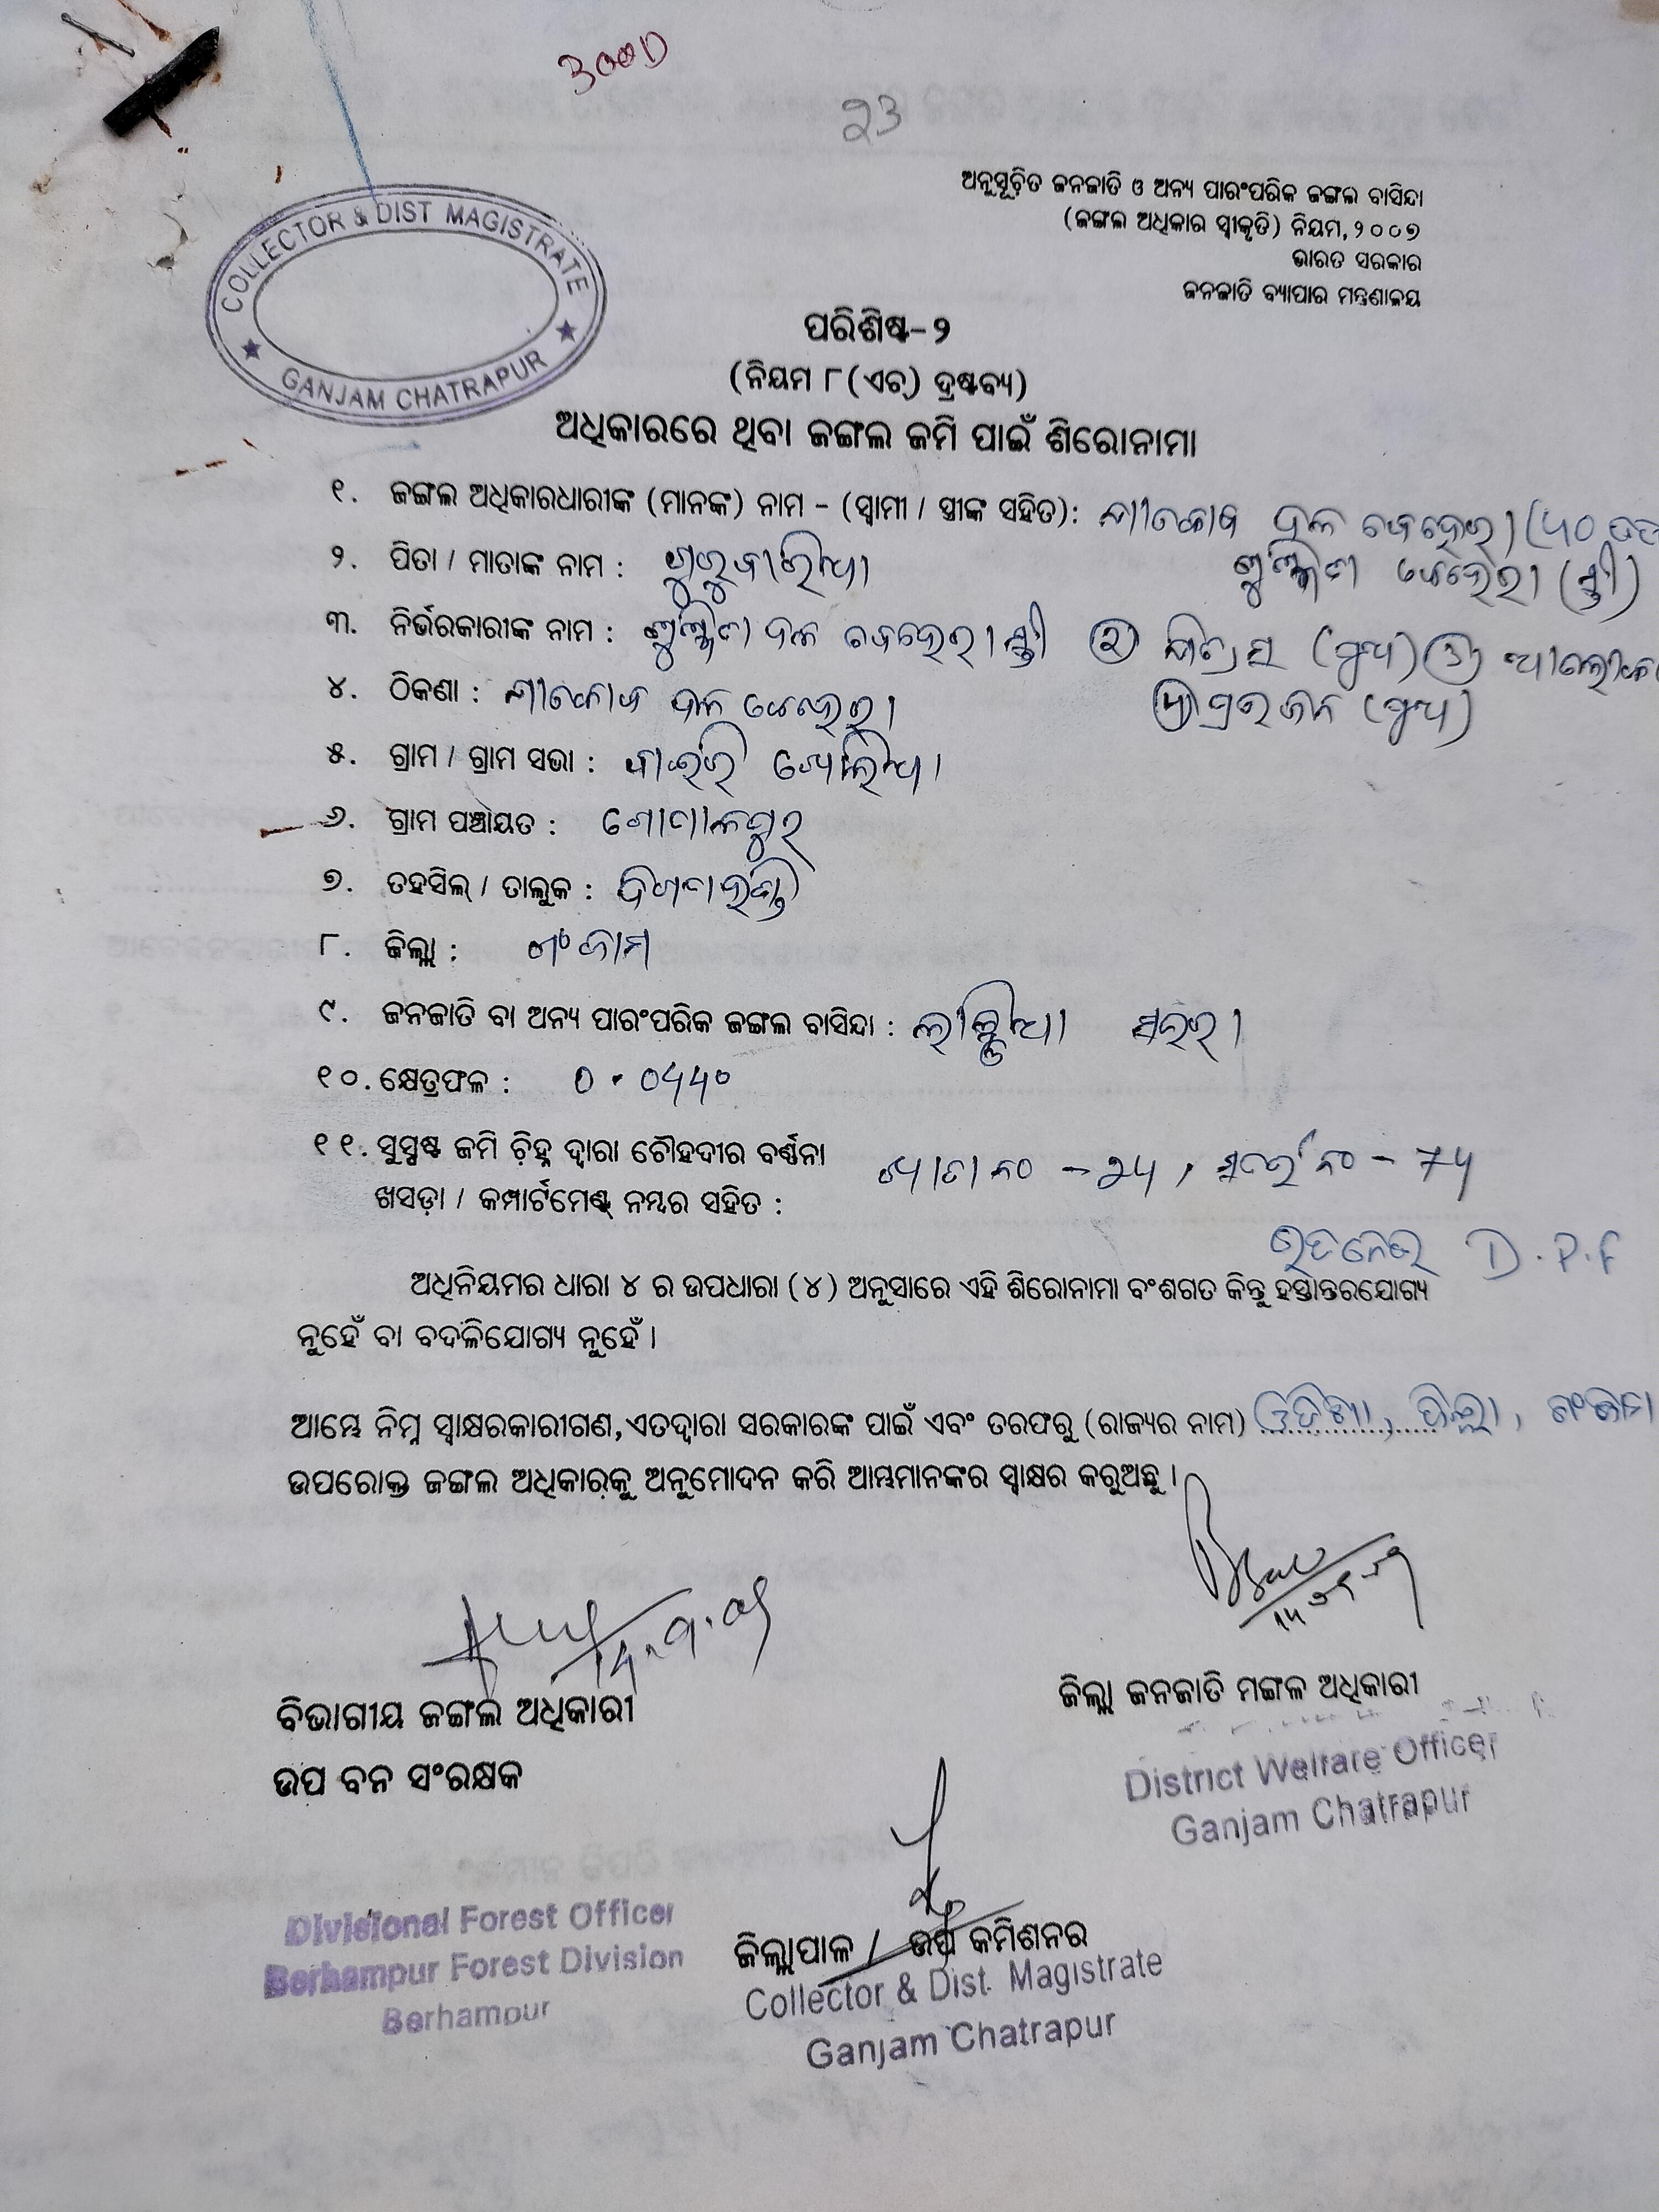 ୨3
ଅନୁସୂଚିତ ଜନଜାତି ଓ ଅନ୍ୟ ପାରଂପରିକ ଜଙ୍ଗଲ ବାସିନ୍ଦା
(ଜଙ୍ଗଲ ଅଧିକାର ସ୍ୱୀକୃତି) ନିୟମ,୨୦୦୭
ଭାରତ ସରକାର
ଜନଜାତି ବ୍ୟାପାର ମନ୍ତ୍ରଣାଳୟ
COLLECTOR & DIST MAGISTRATE
GANJAM CHATRAPUR
ପରିଶିଷ୍ଟ-୨
(ନିୟମ ୮(ଏଚ୍) ଦ୍ରଷ୍ଟବ୍ୟ)
ଅଧିକାରରେ ଥିବା ଜଙ୍ଗଲ ଜମି ପାଇଁ ଶିରୋନାମା
୧. ଜଙ୍ଗଲ ଅଧିକାରଧାରୀଙ୍କ (ମାନଙ୍କ) ନାମ - (ସ୍ୱାମୀ / ସ୍ତ୍ରୀଙ୍କ ସହିତ): ଦଳ ବେହେରା
ବେହେରା (ସ୍ତ୍ରୀ)
୨. ପିତା / ମାତାଙ୍କ ନାମ : ଗୁରୁବାରିଆ
୩. ନିର୍ଭରକାରୀଙ୍କ ନାମ : ଦଳ ବେହେରା ସ୍ତ୍ରୀ ② (ପୁଅ) ③
(ପୁଅ)
୪. ଠିକଣା : ଦଳ ବେହେରା
୫. ଗ୍ରାମ / ଗ୍ରାମ ସଭା :
୬. ଗ୍ରାମ ପଞ୍ଚାୟତ : ଗୋପାଳପୁର
୭. ତହସିଲ୍ / ତାଲୁକ : ଦିଗପହଣ୍ଡି
୮. ଜିଲ୍ଲା : ଗଂଜାମ
୯. ଜନଜାତି ବା ଅନ୍ୟ ପାରଂପରିକ ଜଙ୍ଗଲ ବାସିନ୍ଦା : ଲାଞ୍ଜିଆ ସଉରା
୧୦. କ୍ଷେତ୍ରଫଳ : ୦.୦୪୪୦
୧୧. ସୁସ୍ପଷ୍ଟ ଜମି ଚିହ୍ନ ଦ୍ୱାରା ଚୌହଦୀର ବର୍ଣ୍ଣନା
ଖସଡ଼ା / କମ୍ପାର୍ଟମେଣ୍ଟ୍ ନମ୍ବର ସହିତ : ଖାତା ନଂ
D.P.F
ଅଧିନିୟମର ଧାରା ୪ ର ଉପଧାରା (୪) ଅନୁସାରେ ଏହି ଶିରୋନାମା ବଂଶଗତ କିନ୍ତୁ ହସ୍ତାନ୍ତରଯୋଗ୍ୟ
ନୁହେଁ ବା ବଦଳିଯୋଗ୍ୟ ନୁହେଁ ।
ଆମ୍ଭେ ନିମ୍ନ ସ୍ୱାକ୍ଷରକାରୀଗଣ,ଏତଦ୍ୱାରା ସରକାରଙ୍କ ପାଇଁ ଏବଂ ତରଫରୁ (ରାଜ୍ୟର ନାମ) ଓଡ଼ିଶା, ଜିଲ୍ଲା, ଗଂଜାମ
ଉପରୋକ୍ତ ଜଙ୍ଗଲ ଅଧିକାରକୁ ଅନୁମୋଦନ କରି ଆମ୍ଭମାନଙ୍କର ସ୍ୱାକ୍ଷର କରୁଅଛୁ ।
ବିଭାଗୀୟ ଜଙ୍ଗଲ ଅଧିକାରୀ
ଉପ ବନ ସଂରକ୍ଷକ
ଜିଲ୍ଲା ଜନଜାତି ମଙ୍ଗଳ ଅଧିକାରୀ
District Welfare Officer
Ganjam Chatrapur
Divisional Forest Officer
Berhampur Forest Division
Berhampur
ଜିଲ୍ଲାପାଳ / ଉପ କମିଶନର
Collector & Dist. Magistrate
Ganjam Chatrapur